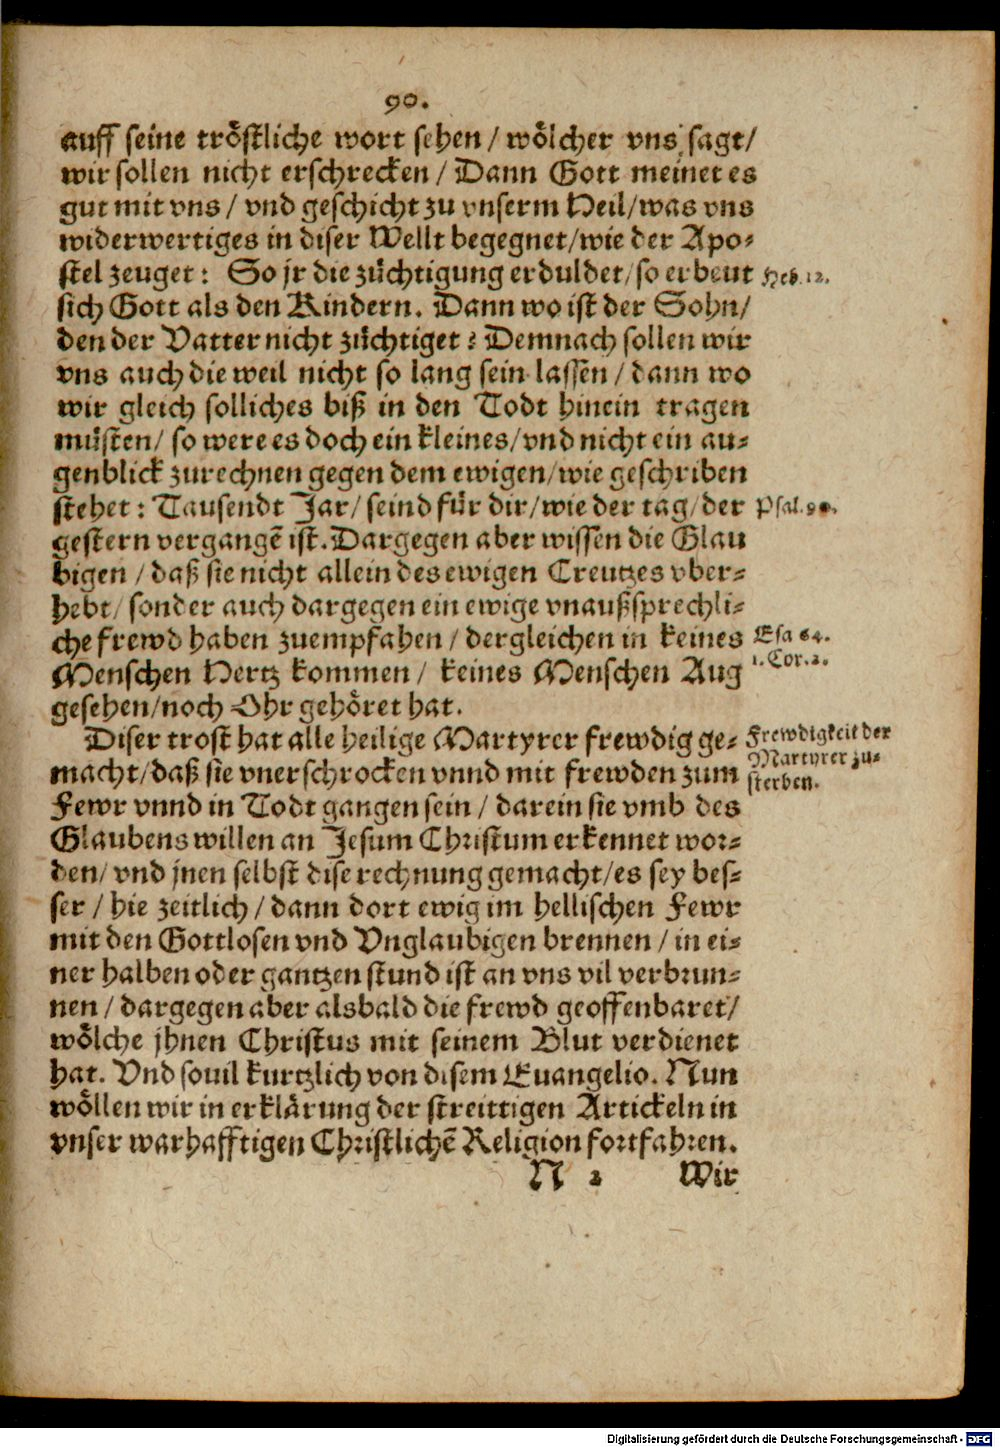 90.
auff seine tröstliche wort sehen / wölcher vns sagt/
wir sollen nicht erschrecken / Dann Gott meinet es
gut mit vns / vnd geschicht zu vnserm Heil/was vns
widerwertiges in diser Wellt begegnet/wie der Apo-
stel zeuget: So jr die züchtigung erduldet/so erbeut
Heb. 12.
sich Gott als den Kindern. Dann wo ist der Sohn/
den der Vatter nicht züchtiget? Demnach sollen wir
vns auch die weil nicht so lang sein lassen / dann wo
wir gleich solliches biß in den Todt hinein tragen
müsten/ so were es doch ein kleines/vnd nicht ein au-
genblick zurechnen gegen dem ewigen/wie geschriben
stehet: Tausendt Jar/ seind für dir/wie der tag/der
Psal. 90.
gestern vergangē ist. Dargegen aber wissen die Glau
bigen / daß sie nicht allein des ewigen Creutzes vber-
hebt/ sonder auch dargegen ein ewige vnaußsprechli-
che frewd haben zuempfahen / dergleichen in keines
Esa 64.
Menschen Hertz kommen / keines Menschen Aug
1. Cor. 2.
gesehen/noch Ohr gehöret hat.
Diser trost hat alle heilige Martyrer frewdig ge-
Frewdigkeit der
macht/daß sie vnerschrocken vnnd mit frewden zum
Martyrer zu-
sterben.
Fewr vnnd in Todt gangen sein / darein sie vmb des
Glaubens willen an Jesum Christum erkennet wor-
den/ vnd jnen selbst dise rechnung gemacht/es sey bes-
ser / hie zeitlich / dann dort ewig im hellischen Fewr
mit den Gottlosen vnd Vnglaubigen brennen / in ei-
ner halben oder gantzen stund ist an vns vil verbrun-
nen / dargegen aber alsbald die frewd geoffenbaret/
wölche jhnen Christus mit seinem Blut verdienet
hat. Vnd souil kurtzlich von disem Euangelio. Nun
wöllen wir in erklärung der streittigen Artickeln in
vnser warhafftigen Christlichē Religion fortfahren.
N 2 Wir
Digitalisierung gefördert durch die Deutsche Forschungsgemeinschaft - DFG